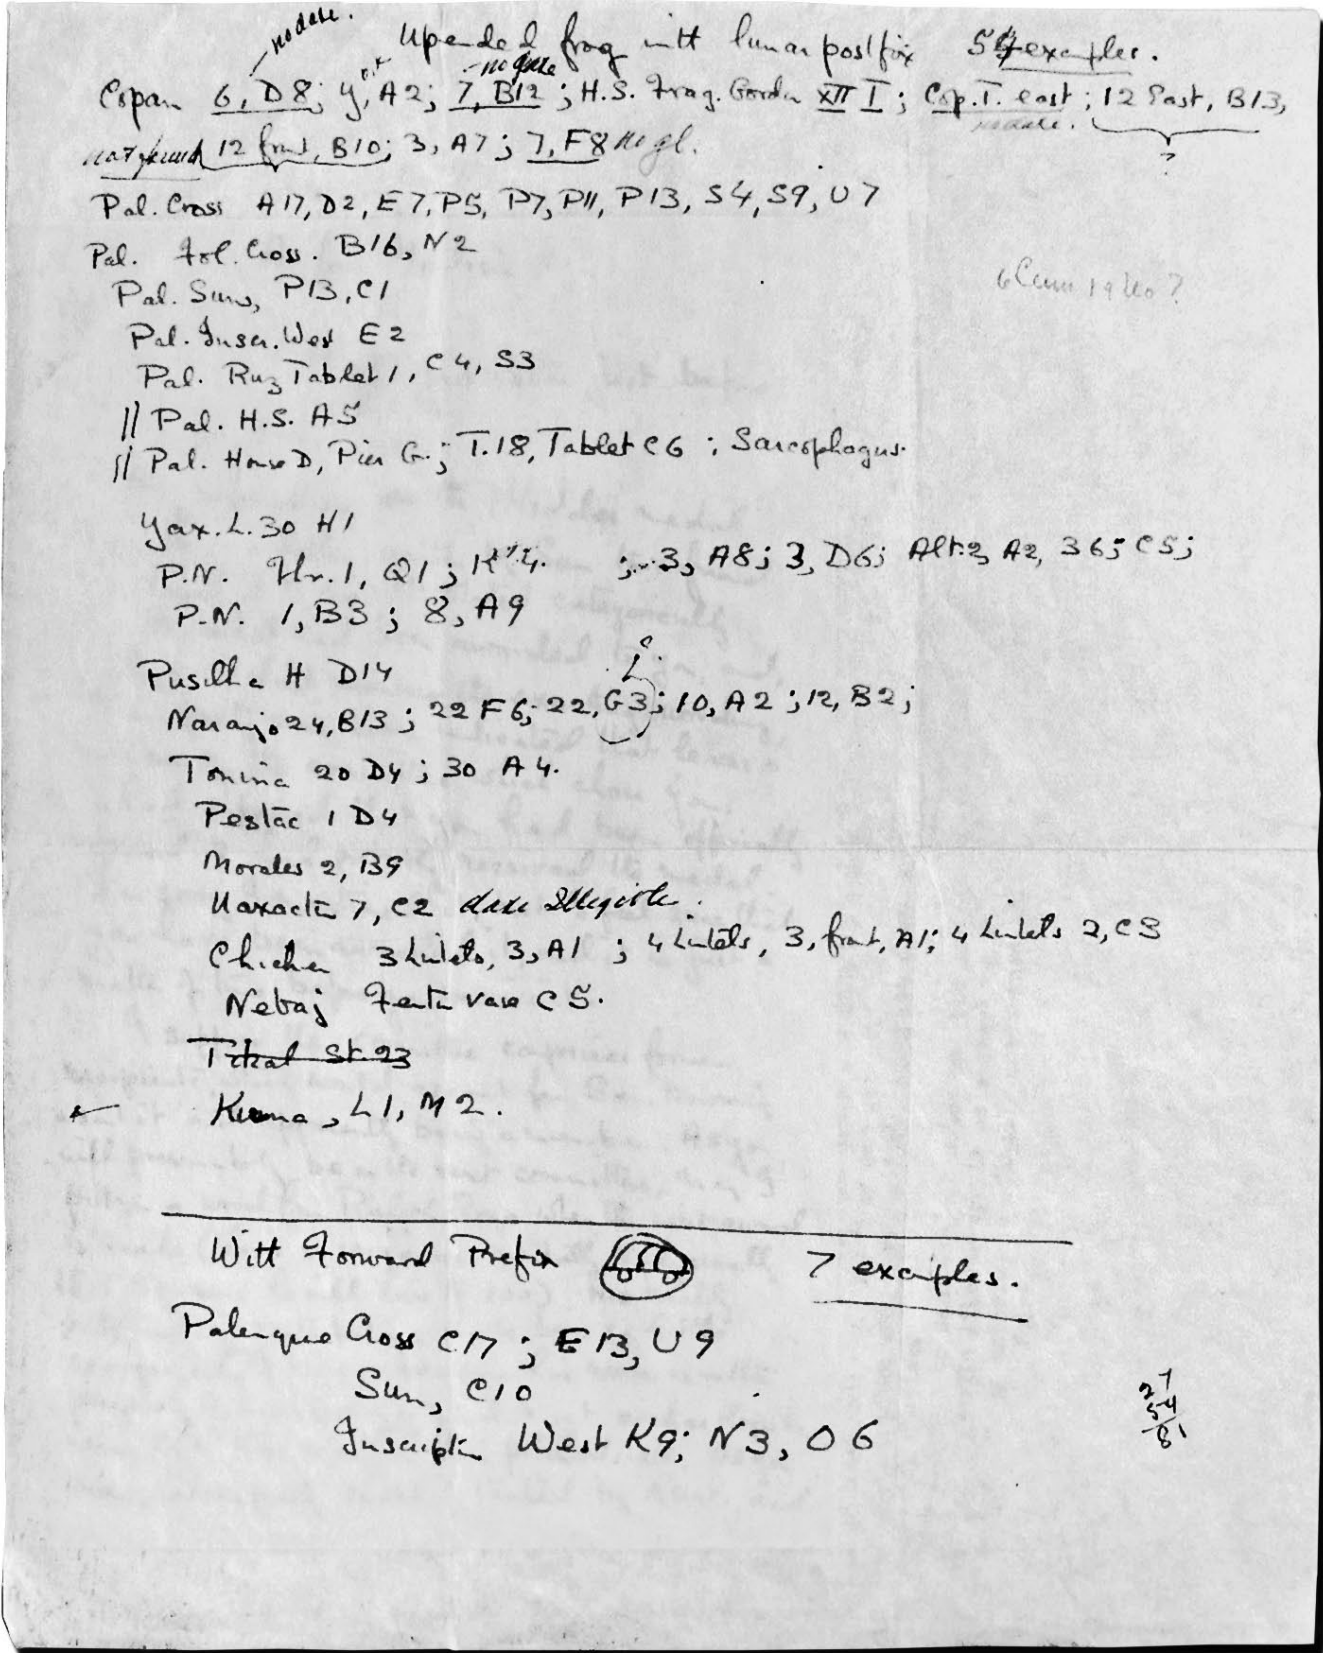 no date.
Upended frog with lunar postfix 54 examples.
no date
Copan 6, D8; Y, A2; 7, B12; H.S. Frag. Gordon XII I; Cop. T. east; 12 East, B13,
no date. ?
not found 12 front, B10; 3, A7; 7, F8 no gl.
Pal. Cross A17, D2, E7, P5, P7, P11, P13, S4, S9, U7
Pal. Fol. Cross. B16, N2
Pal. Sun, P13, C1
Pal. Inscr. West E2
Pal. Ruz Tablet 1, C4, S3
// Pal. H.S. A5
// Pal. House D, Pier G.; T.18, Tablet C6; Sarcophagus.
Yax. L. 30 H1
P.N. Thr. 1, Q1; K'4. ; 3, A8; 3, D6; Alt. 2, A2, 36; C5;
P.N. 1, B3; 8, A9
Pusilha H D14
Naranjo 24, B13; 22 F6; 22, G3; 10, A2; 12, B2;
Tonina 20 D4; 30 A4.
Pestac 1 D4
Morales 2, B9
Uaxactun 7, C2 date illegible.
Chichen 3 Lintels, 3, A1; 4 Lintels, 3, front, A1; 4 Lintels 2, C3
Nebaj Fenton vase C5.
Tikal St. 23
Kuna, L1, M2.
With Forward Prefix 7 examples.
Palenque Cross C17; E13, U9
Sun, C10
Inscription West K9; N3, O6